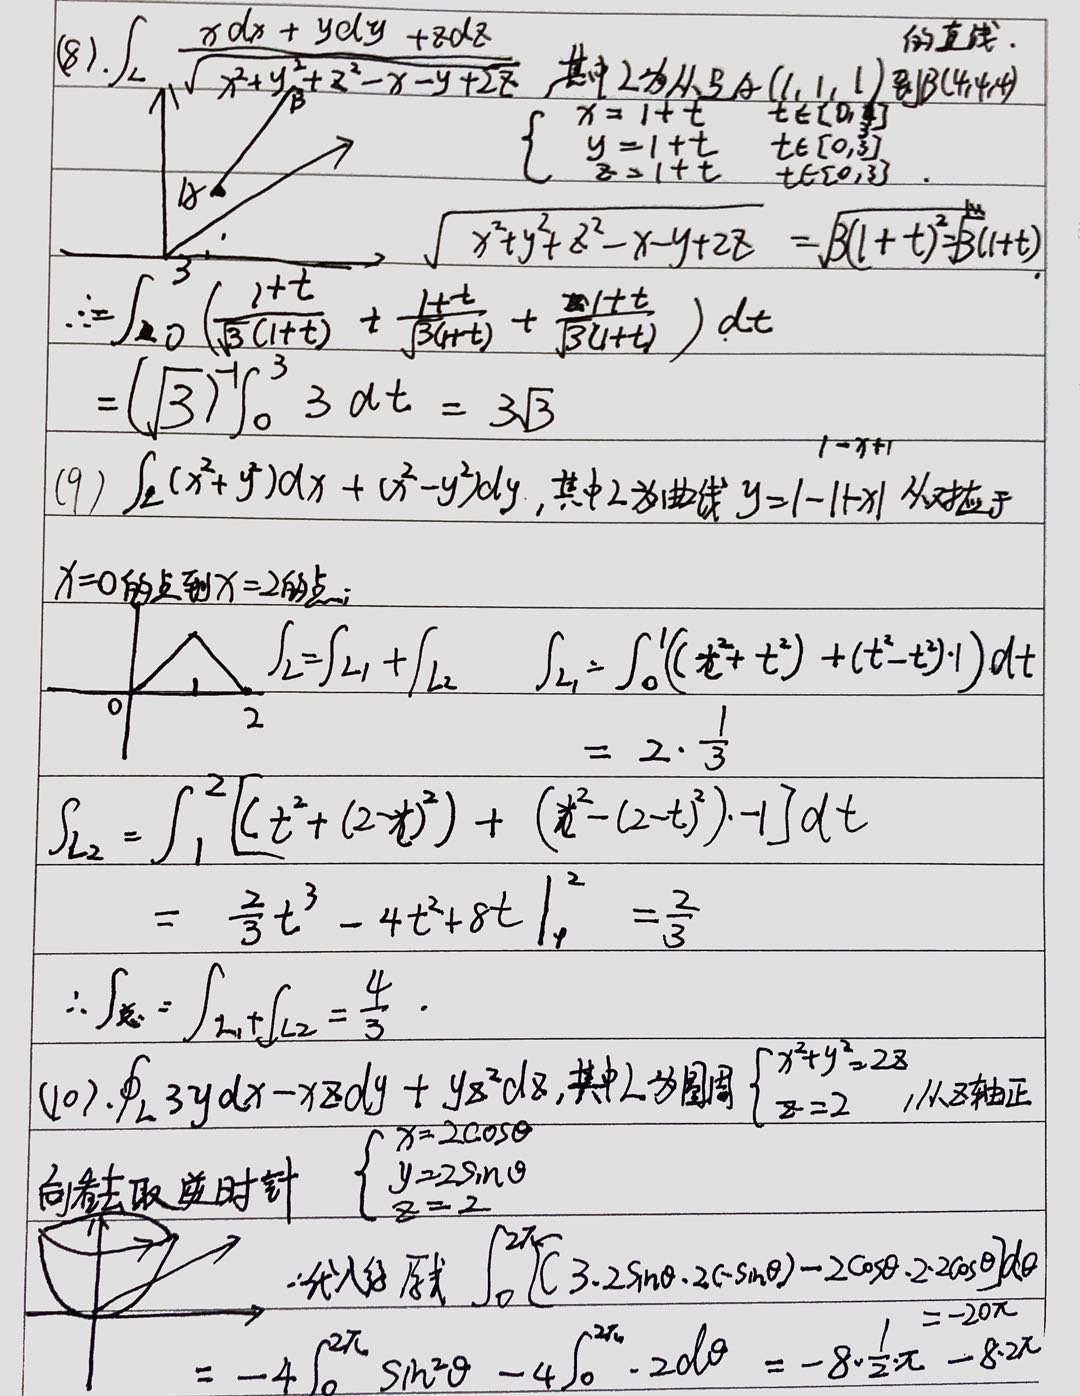 (8). ∫_L (xdx + ydy + zdz)/√(x²+y²+z²-x-y+2z), 其中L为从点A(1,1,1)到B(4,4,4)的直线.
{ x = 1+t t∈[0,3]
y = 1+t t∈[0,3]
z = 1+t t∈[0,3] .
B
A
√(x²+y²+z²-x-y+2z) = √3(1+t)² = √3(1+t).
∴ = ∫₀³ ( (1+t)/(√3(1+t)) + (1+t)/(√3(1+t)) + (1+t)/(√3(1+t)) ) dt
= (√3)⁻¹ ∫₀³ 3 dt = 3√3
1-x+1
(9) ∫_L (x²+y²)dx + (x²-y²)dy, 其中L为曲线 y=1-|1-x| 从对应于
x=0的点到x=2的点;
0 2
∫_L = ∫_L₁ + ∫_L₂ ∫_L₁ = ∫₀¹ ((t²+t²) + (t²-t²)·1) dt
= 2 · 1/3
∫_L₂ = ∫₁² [(t²+(2-t)²) + (t²-(2-t)²)·-1] dt
= 2/3 t³ - 4t² + 8t |₁² = 2/3
∴ ∫总 = ∫_L₁ + ∫_L₂ = 4/3 .
(10). ∮_L 3ydx - xzdy + yz²dz, 其中L为圆周 { x²+y²=2z z=2 , 从z轴正
向看去取逆时针 { x=2cosθ
y=2sinθ
z=2
∴代入得原式 ∫₀^2π [(3·2sinθ·2(-sinθ) - 2cosθ·2·2cosθ] dθ
= -20π
= -4 ∫₀^2π sin²θ - 4 ∫₀^2π ·2dθ = -8·1/2·π - 8·2π